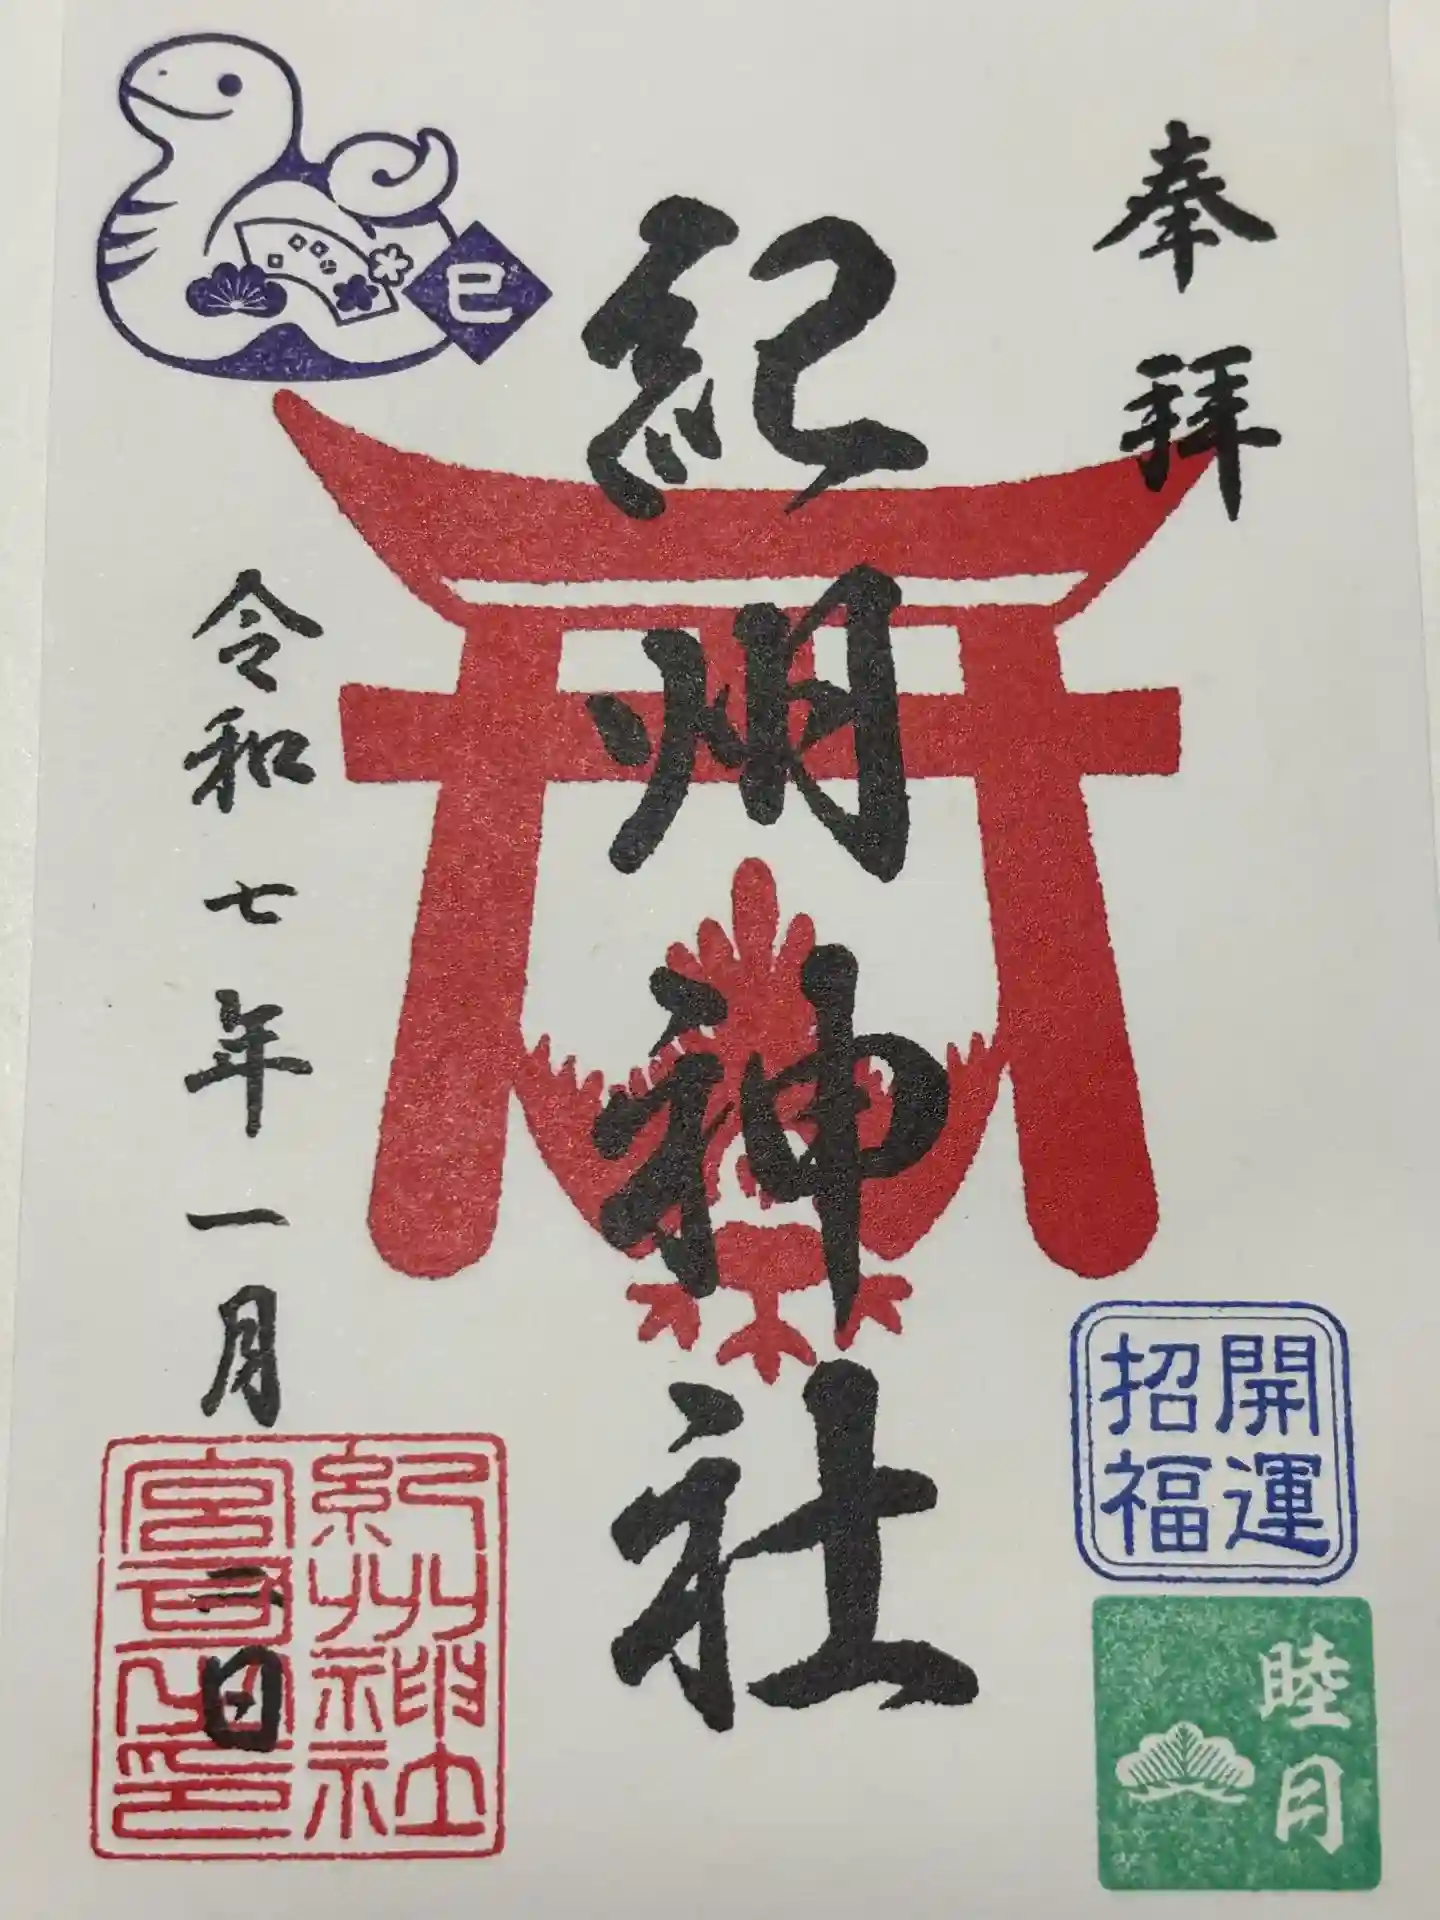 奉拝
開運
招福
睦月
紀州神社
巳
令和七年一月二日
紀州神社
宮司之印